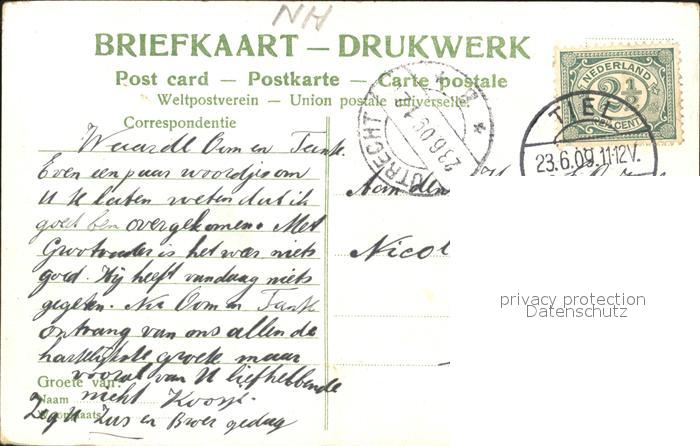 NH
BRIEFKAART — DRUKWERK
Post card — Postkarte — Carte postale
Weltpostverein — Union postale universelle.
Correspondentie
NEDERLAND
2½
CENT
UTRECHT
23.6.09
TIEL
23.6.09.11-12V.
Waarde Oom en Tante.
Even een paar woordjes om
U te laten weten dat ik
goed ben overgekomen. Met
Grootvader is het weer niets
goed. Hij heeft vandaag niets
gegeten. Nu Oom en Tante
ontvang van ons allen de
hartelijkste groete maar
vooral van U liefhebbende
nicht Koosje.
Groete van:
Naam
Woonplaats
Zus en Broer gedag
Aan den
Nicol
privacy protection
Datenschutz